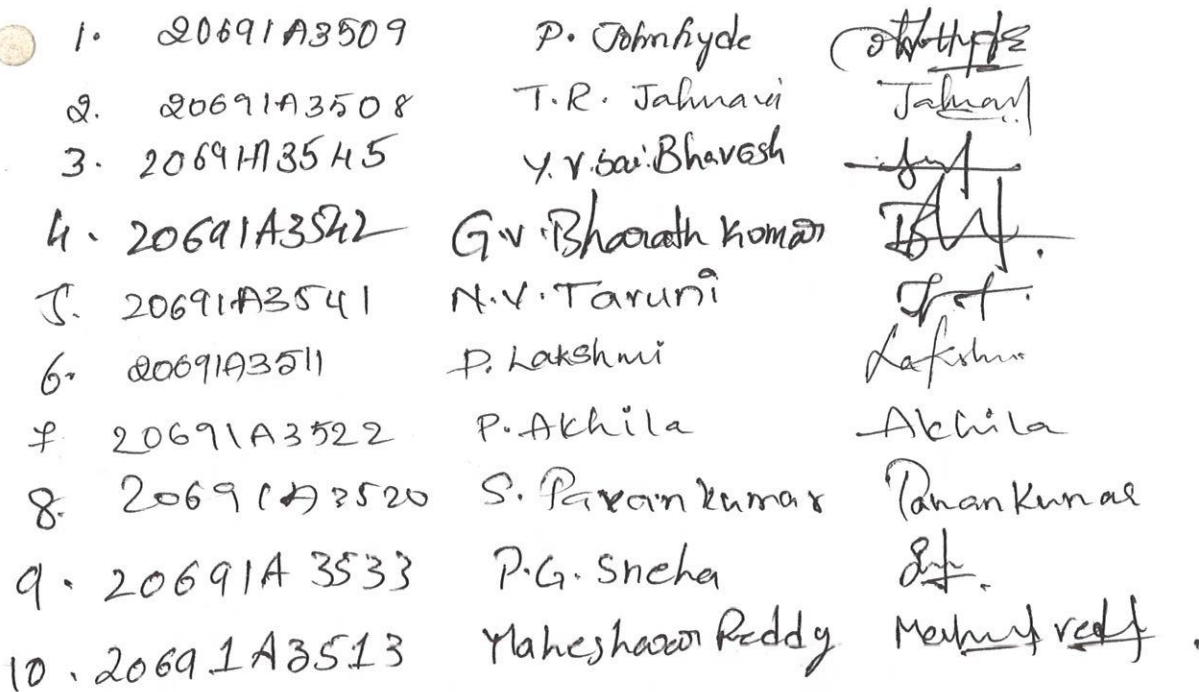 1. 20691A3509 P. Johnhyde
2. 20691A3508 T.R. Jahnavi Jahnavi
3. 20691A3545 Y.V.Sai Bhavesh
4. 20691A3542 G.V.Bharath Kumar
5. 20691A3541 N.V.Taruni
6. 20691A3511 P. Lakshmi Lakshmi
7 20691A3522 P.Akhila Akhila
8. 20691A3520 S. Pavan kumar Pavan Kumar
9. 20691A3533 P.G. Sneha
10. 20691A3513 Maheshwar Reddy